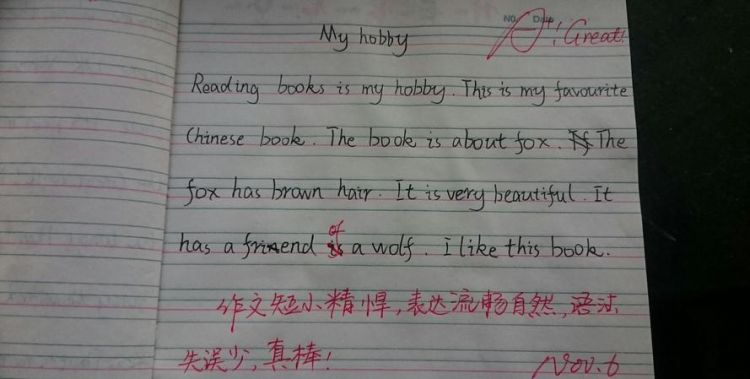 No. Date
My hobby
A+! Great!
Reading books is my hobby. This is my favourite
Chinese book. The book is about fox. The
fox has brown hair. It is very beautiful. It
has a friend of a wolf. I like this book.
作文短小精悍,表达流畅自然,语法
失误少,真棒!
Nov. 6